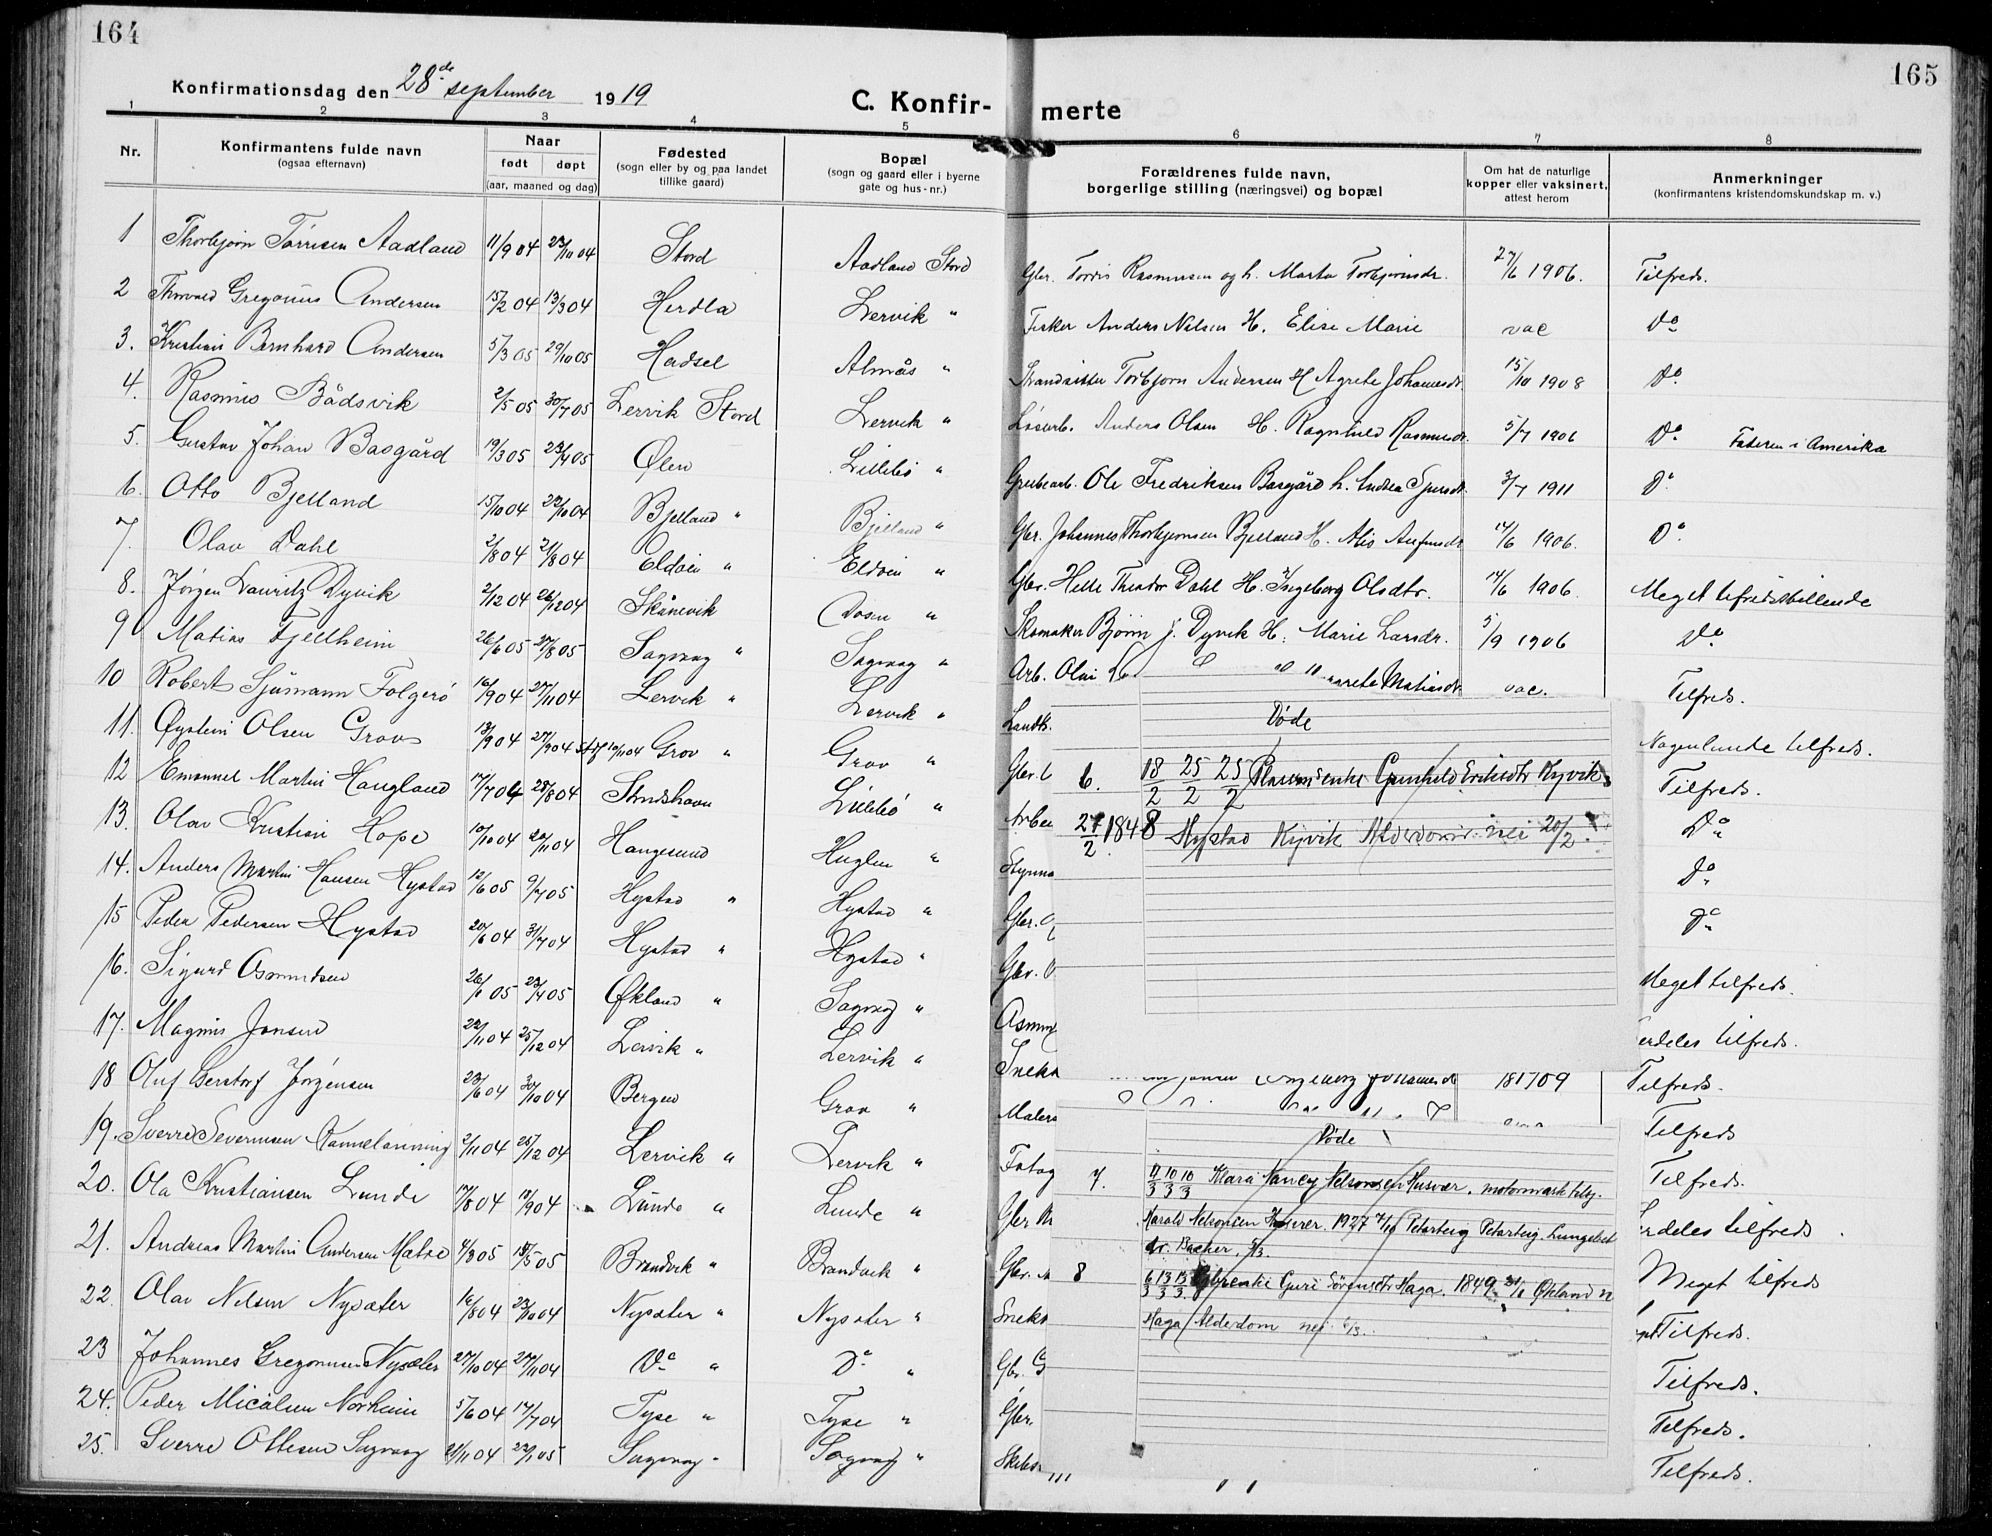 164
165
Konfirmationsdag den 28de september 1919
C. Konfir-merte
1 2 3 4 5 6 7 8
Nr.
Konfirmantens fulde navn
(ogsaa efternavn)
Naar
født døpt
(aar, maaned og dag)
Fødested
(sogn eller by og paa landet
tillike gaard)
Bopæl
(sogn og gaard eller i byerne
gate og hus-nr.)
Forældrenes fulde navn,
borgerlige stilling (næringsvei) og bopæl
Om hat de naturlige
kopper eller vaksinert,
attest herom
Anmerkninger
(konfirmantens kristendomskundskap m. v.)
1 Thorbjørn Tørrisen Aadland 11/9 04 23/10 04 Stord Aadland Stord Gbr. Rasmussen og h. Marta Torbjørnsdr. 27/6 1906. Tilfreds.
2 Thorvald Gregorius Andersen 15/2 04 13/3 04 Herdla Lervik " Fisker Anders Nelsen H. Elise Marie vac Do
3. Kristian Bernhard Andersen 5/3 05 29/10 05 Hadsel Almås " Strandsitter Torbjørn Andersen H Agrete Johannesdr. 15/10 1908 Do
4. Rasmus Bådsvik 2/5 05 30/7 05 Lervik Stord Lervik " Løsarb. Anders Olsen H. Ragnhild Rasmusdr. 5/7 1906 Do Faderen i Amerika
5. Gustav Johan Basgård 19/3 05 23/4 05 Ølen Lillebø " Grubearb. Ole Fredriksen Basgård h. Andrea 3/7 1911 Do
6. Otto Bjelland 15/10 04 23/10 04 Bjelland " Bjelland " Gbr. Johannes Thorbjørnsen Bjelland H. 14/6 1906. Do
7. Olav Dahl 2/8 04 21/8 04 Eldøen " Eldøen " Gbr. Helle Theodor Dahl H. Ingeborg Olsdtr. 14/6 1906. Meget tilfredsstillende
8. Jørgen Lauritz Dyvik 2/12 04 26/12 04 Skånevik Dosen " Skomaker Bjørn J. Dyvik H. Marie Larsdr. 5/9 1906 Do
9 Matias Fjellheim 26/6 05 27/8 05 Sagvag " Sagvag " Arb. Olai Matiasdr. vac. Tilfreds.
10 Robert Sjumann Folgerø 16/9 04 27/11 04 Lervik " Lervik " Nogenlunde tilfreds.
11. Øystein Olsen Grov 13/9 04 27/9 04 Stf 10/11 04 Grov " Grov " Gbr. Tilfreds.
12 Emanuel Martin Haugland 17/7 04 28/8 04 Lillebø " Do
13. Olav Kristian Hope 10/10 04 20/11 04 Haugesund Huglen " Do
14. Anders Martin Hansen Hystad 12/6 05 9/7 05 Hystad " Hystad " Gbr. Do
15 Peder Pedersen Hystad 20/6 04 31/7 04 Hystad " Hystad " Gbr. Meget tilfreds.
16. Sigurd Osmundsen 26/1 05 23/4 05 Økland " Sagvag " erdeles tilfreds.
17. Magnus Jonsen 22/11 04 25/12 04 Lervik " Lervik " 181709 Tilfreds.
18 Oluf Gerstorf Jørgensen 23/6 04 30/10 04 Bergen Grov " Tilfreds
19. Sverre Severinsen Kannelønning 2/11 04 25/12 04 Lervik " Lervik " Fotog Tilfreds.
20. Ola Kristiansen Lunde 17/8 04 18/9 04 Lunde " Lunde " Gbr erdeles tilfreds
21. Andreas Martin Andersen Matre 4/3 05 15/5 05 Brandvik " Brandvik " Gbr. Meget tilfreds
22. Olav Nilsen Nysæter 16/8 04 23/10 04 Nysæter " Nysæter " Tilfreds.
23 Johannes Gregoriussen Nysæter 27/10 04 27/11 04 Do " Do " Gbr. Tilfreds.
24. Peder Micalsen Norheim 5/6 04 17/7 04 Tyse " Tyse " Gbr. Tilfreds.
25. Sverre Ottesen Sagvaag 21/11 04 22/1 05 Sagvag " Sagvag " Tilfreds.
Døde
6. 18/2 25/2 25/2 Gunhild Eriksdtr Kyvik
27/2 1848 Hystad Kyvik Alderdom nei 20/2.
Døde
7. 7/3 10/3 10/3 Klara Nancy Nelsonsen Husvær. motormask.
Harald Nelsonsen Husvær. 1927 Petarteig Petarteig. Lungebet
dr. Backer. 5/3
8 6/3 13/3 13/3 Guri Sørensdtr Haga. 1849 31/1 Økland n
Haga Alderdom nei 6/3.